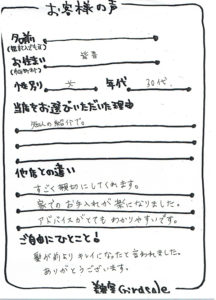 お客様の声
名前
お住まい
性別 女 年代 30代
当店をお選びいただいた理由
知人の紹介で。
他店との違い
すごく親切にしてくれます。
家でのお手入れが楽になりました。
アドバイスがとてもわかりやすいです。
ご自由にひとこと!
髪が前よりキレイになったと言われました。
ありがとうございます。
Girasole